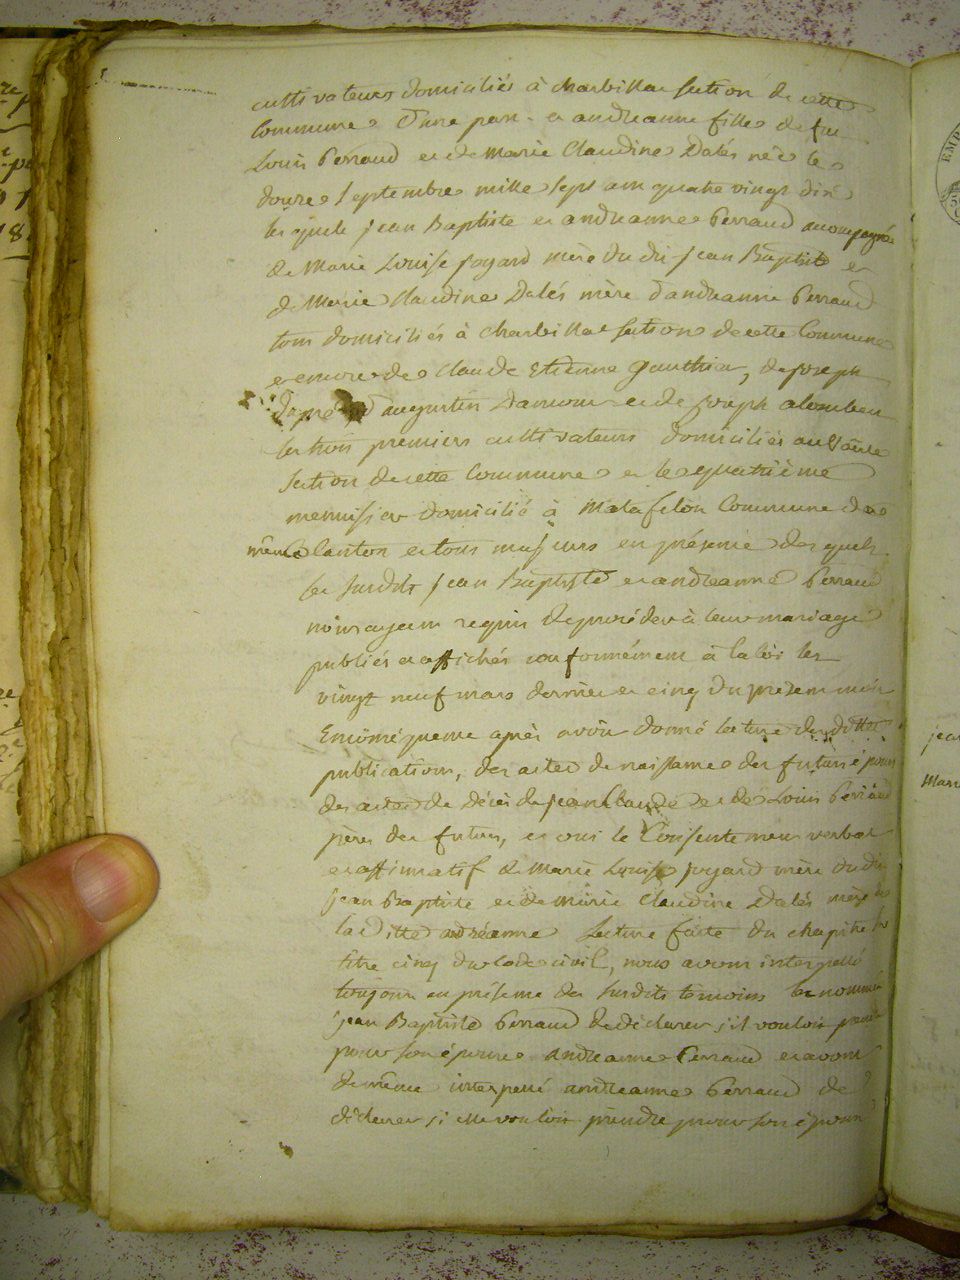 cultivateurs domiciliés à charbillat section de cette
Commune D'une part et andréanne fille de fu
Louis Perraud et de Marie Claudine Dalés née le
douze Septembre mille Sept cent quatre vingt dix
les quels jean Baptiste et andréanne Perraud accompagnés
de Marie Louise joyard mère du dit jean Baptiste et
de Marie Claudine Dalés mère d'andréanne Perraud
tous domiciliés à charbillat section de cette Commune
et encore de claude Etienne Gauthier, de joseph
augustin Damour et de joseph
les trois premiers cultivateurs domiciliés au
section de cette Commune et le quatrième
menuisier domicilié à Matafelon Commune de
même Canton et tous majeurs en présence des quels
les susdits jean Baptiste et andréanne Perraud
nous ayant requis de procéder à leur mariage
publiés et affichés conformément à la loi les
vingt neuf mars dernier et cinq du présent mois
En conséquence après avoir donné lecture des dittes
publications, des actes de naissance des futurs époux
des actes de décès de jean Claude et de Louis Perraud
pères des futurs, et oui le Consentement verbal
et affirmatif de Marie Louise joyard mère du dit
jean Baptiste et de Marie Claudine Dalés mère de
la ditte andréanne Lecture faite du chapitre
titre cinq du Code civil, nous avons interpellé
toujours en présence des susdits témoins le nommé
jean Baptiste Perraud de déclarer s'il vouloit prendre
pour son épouse andréanne Perraud et avons
de même interpellé andréanne Perraud de
déclarer si elle vouloit prendre pour son époux